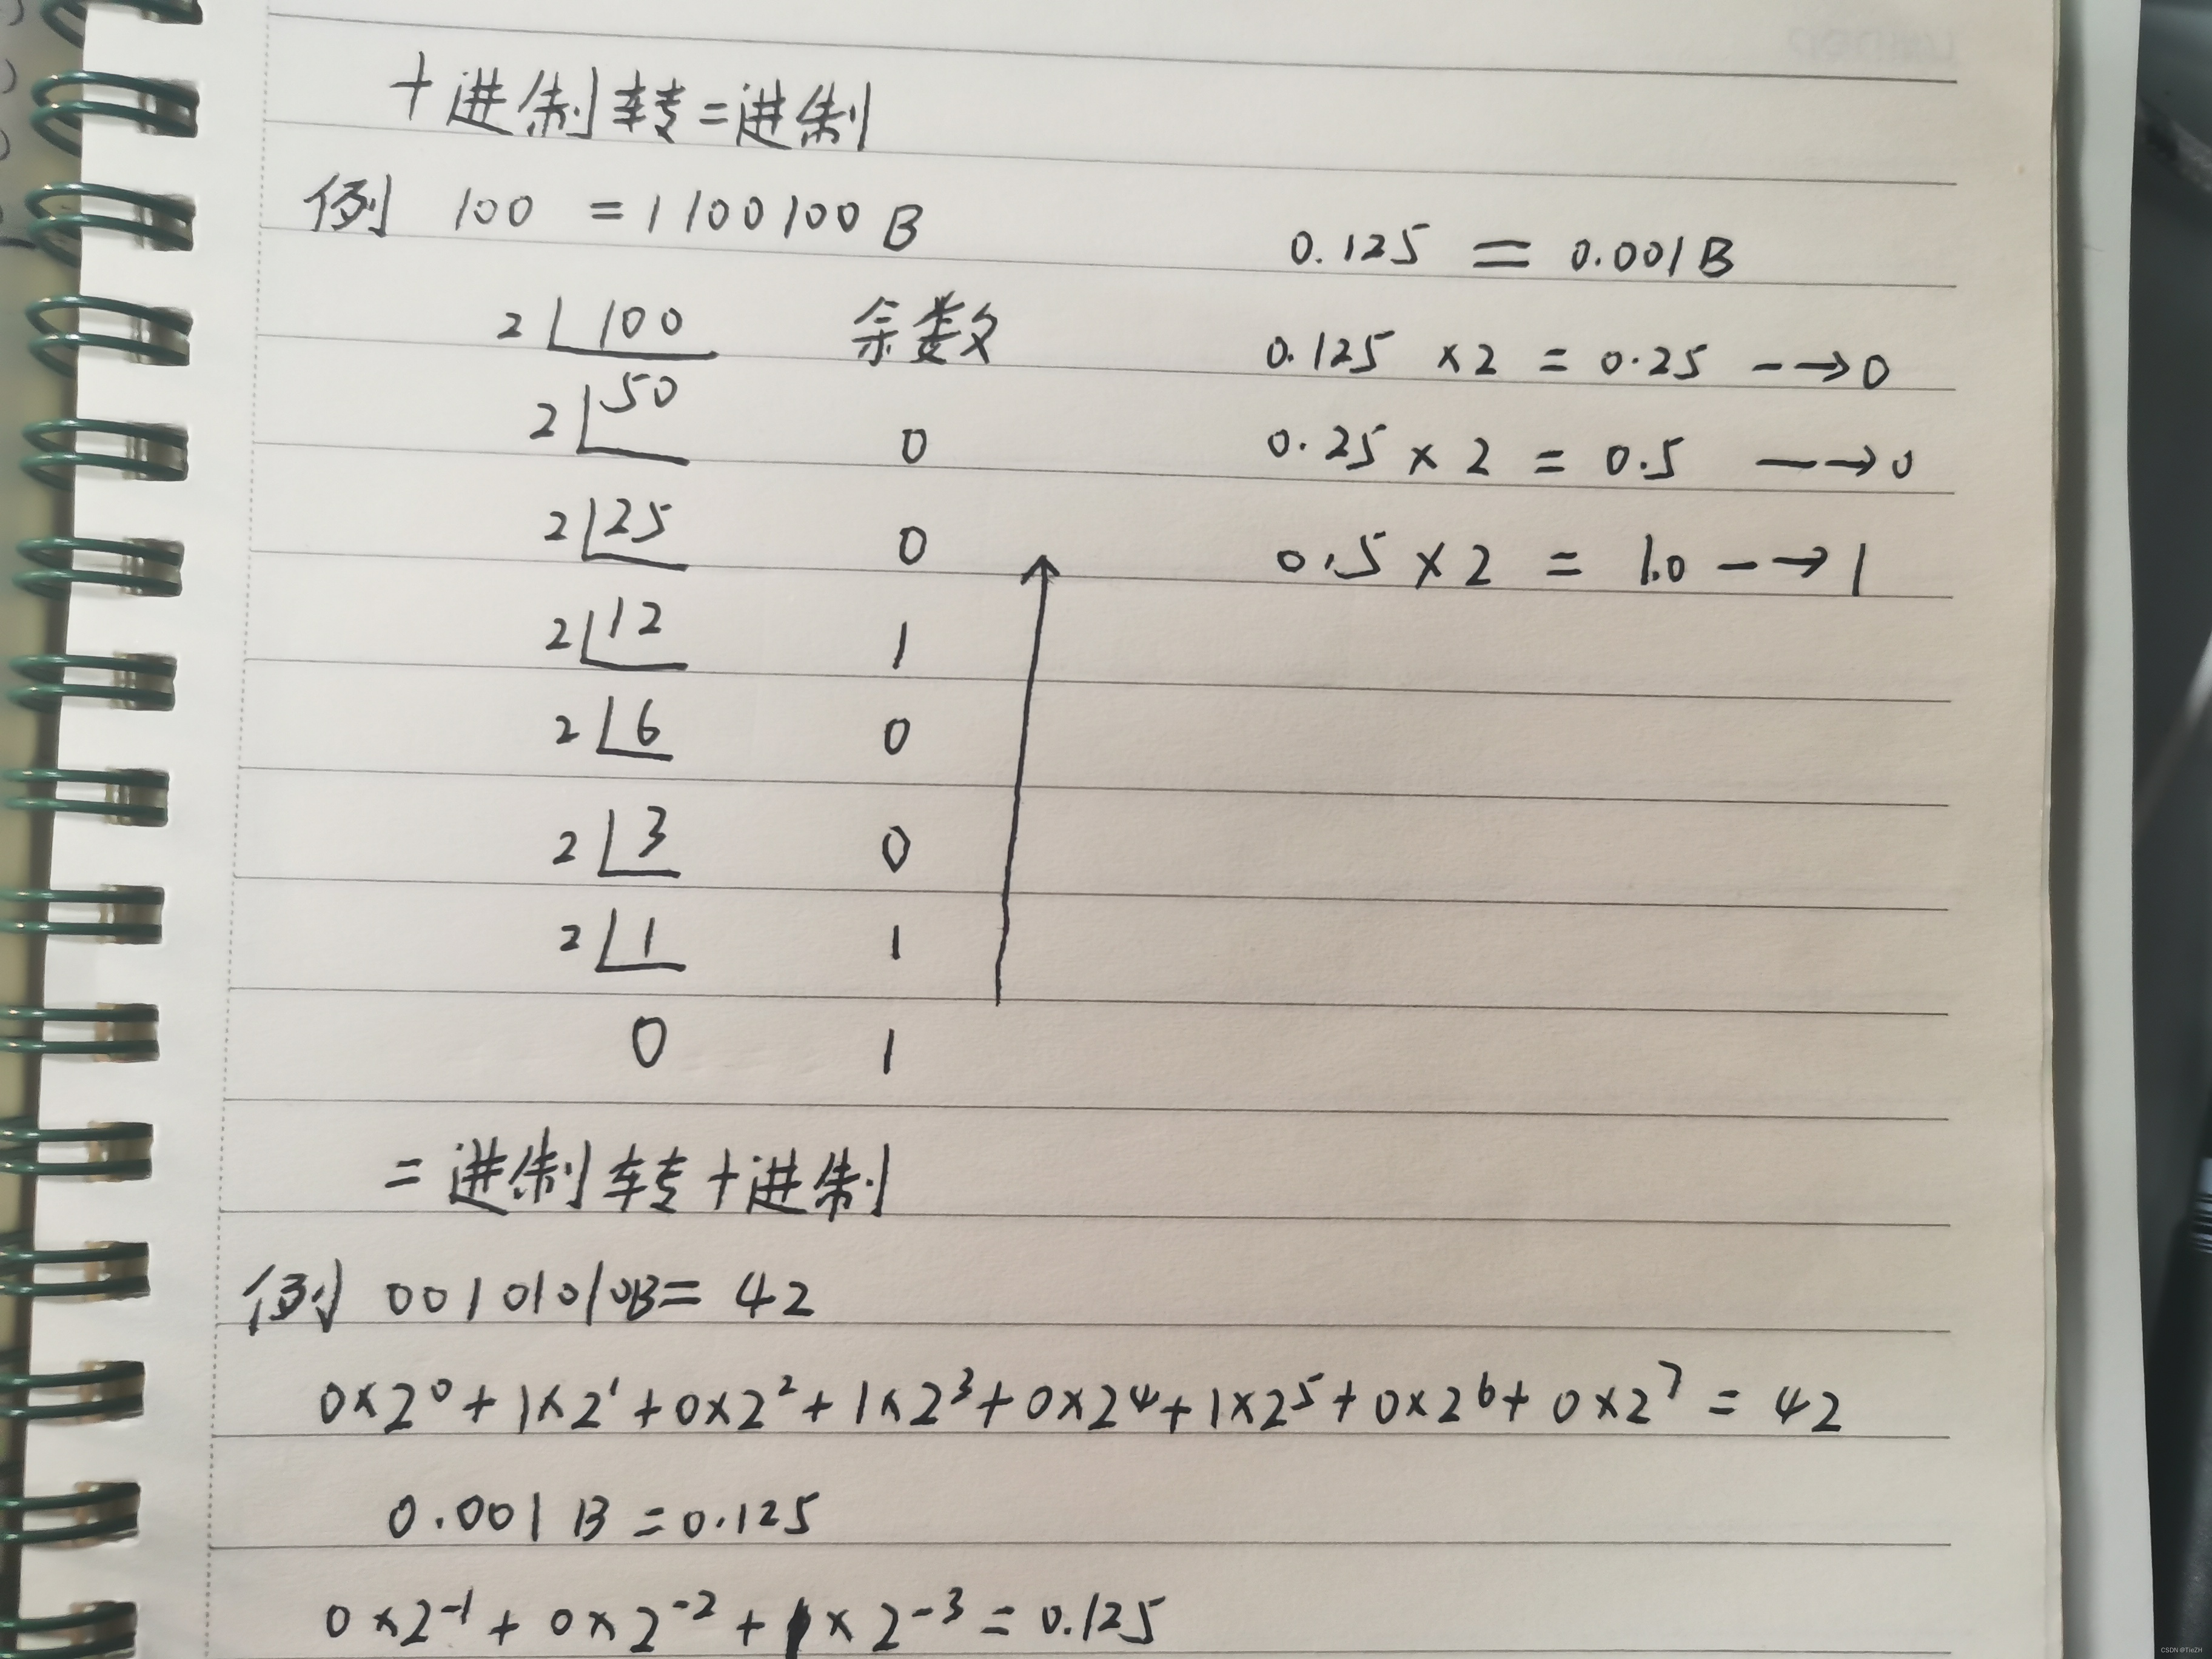 十进制转二进制
例 100 = 1100100 B
2 100 余数
2 50 0
2 25 0
2 12 1
2 6 0
2 3 0
2 1 1
0 1
0.125 = 0.001B
0.125 ×2 = 0.25 --→0
0.25 × 2 = 0.5 --→0
0.5 × 2 = 1.0 --→1
二进制转十进制
例 00101010B = 42
0×2⁰ + 1×2¹ + 0×2² + 1×2³ + 0×2⁴ + 1×2⁵ + 0×2⁶ + 0×2⁷ = 42
0.001 B = 0.125
0×2⁻¹ + 0×2⁻² + 1×2⁻³ = 0.125
CSDN @TieZH